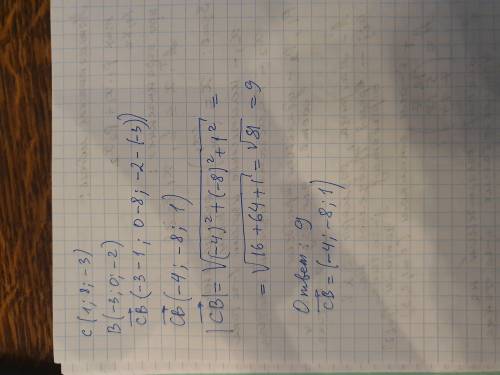 C (1; 8; -3)
B (-3; 0; -2)
CB (-3-1; 0-8; -2-(-3))
CB (-4; -8; 1)
|CB| = √((-4)² + (-8)² + 1²) =
= √(16+64+1) = √81 = 9
Ответ: 9
CB = (-4; -8; 1)